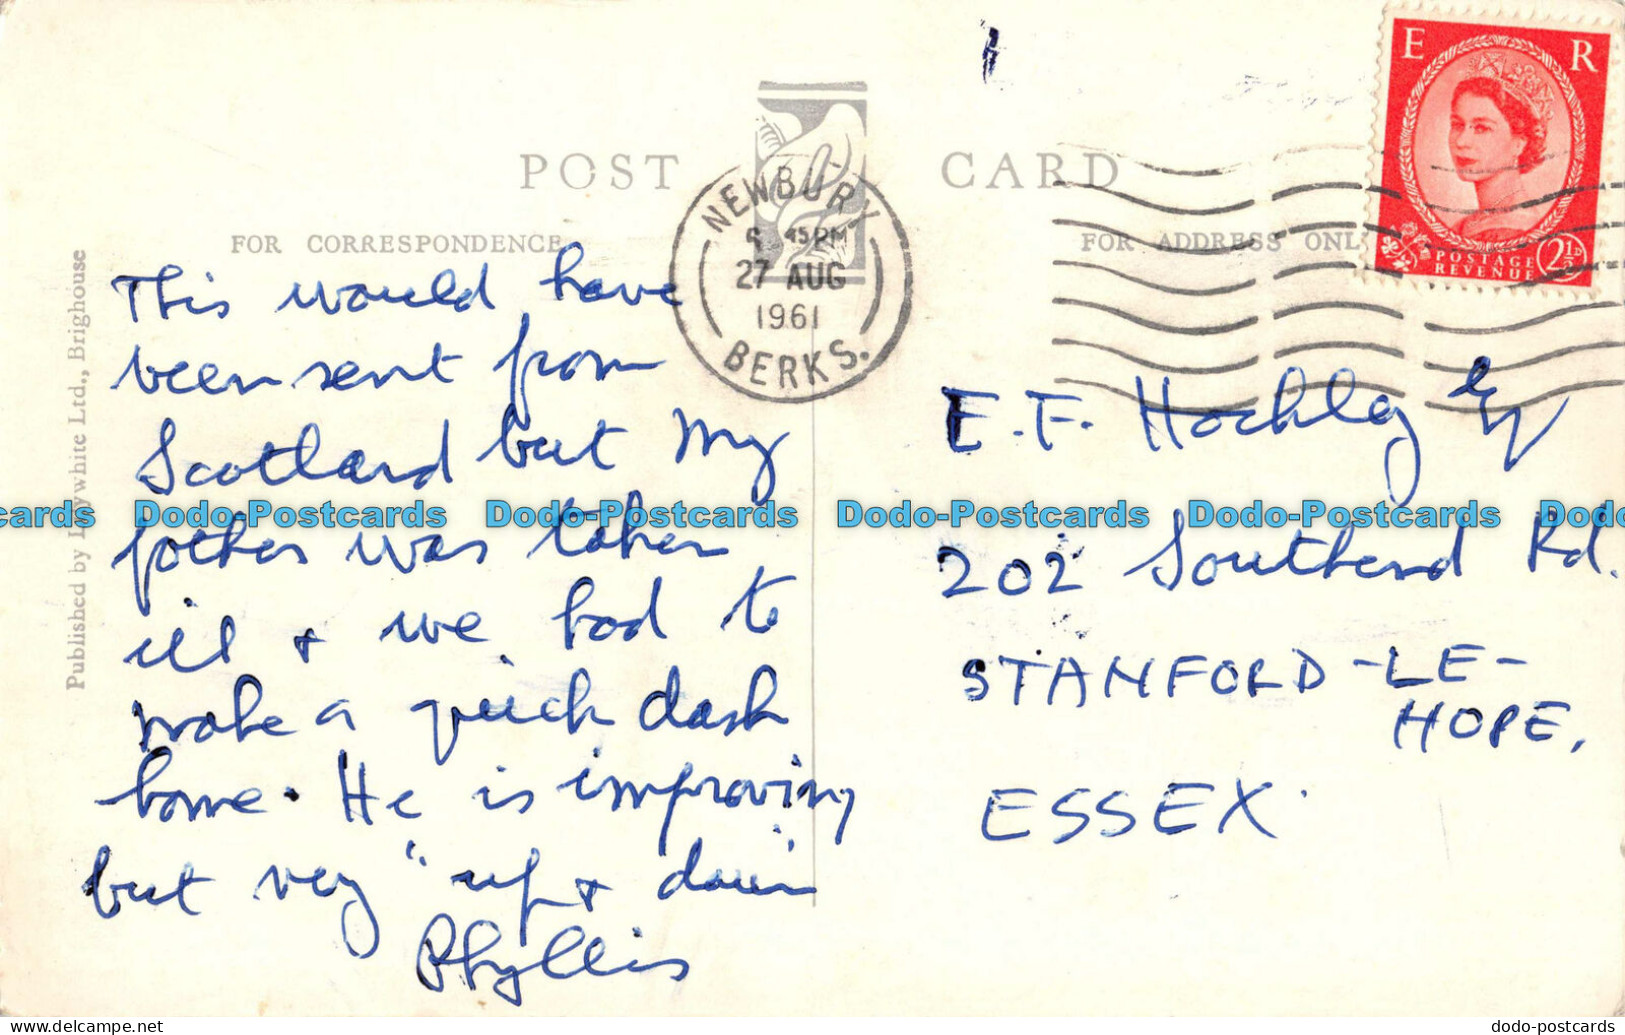 POST CARD
FOR CORRESPONDENCE
FOR ADDRESS ONL
NEWBURY
45 PM
27 AUG
1961
BERKS.
E R
POSTAGE
REVENUE
2½D
This would have
been sent from
Scotland but my
father was taken
ill + we had to
make a quick dash
home. He is improving
but very "up + down"
Phyllis
E.F. Hockley Esq
202 Southend Rd.
STANFORD-LE-
HOPE,
ESSEX.
Published by Lilywhite Ltd., Brighouse
cards Dodo-Postcards Dodo-Postcards Dodo-Postcards Dodo-Postcards Dodo
dodo-postcards
www.delcampe.net